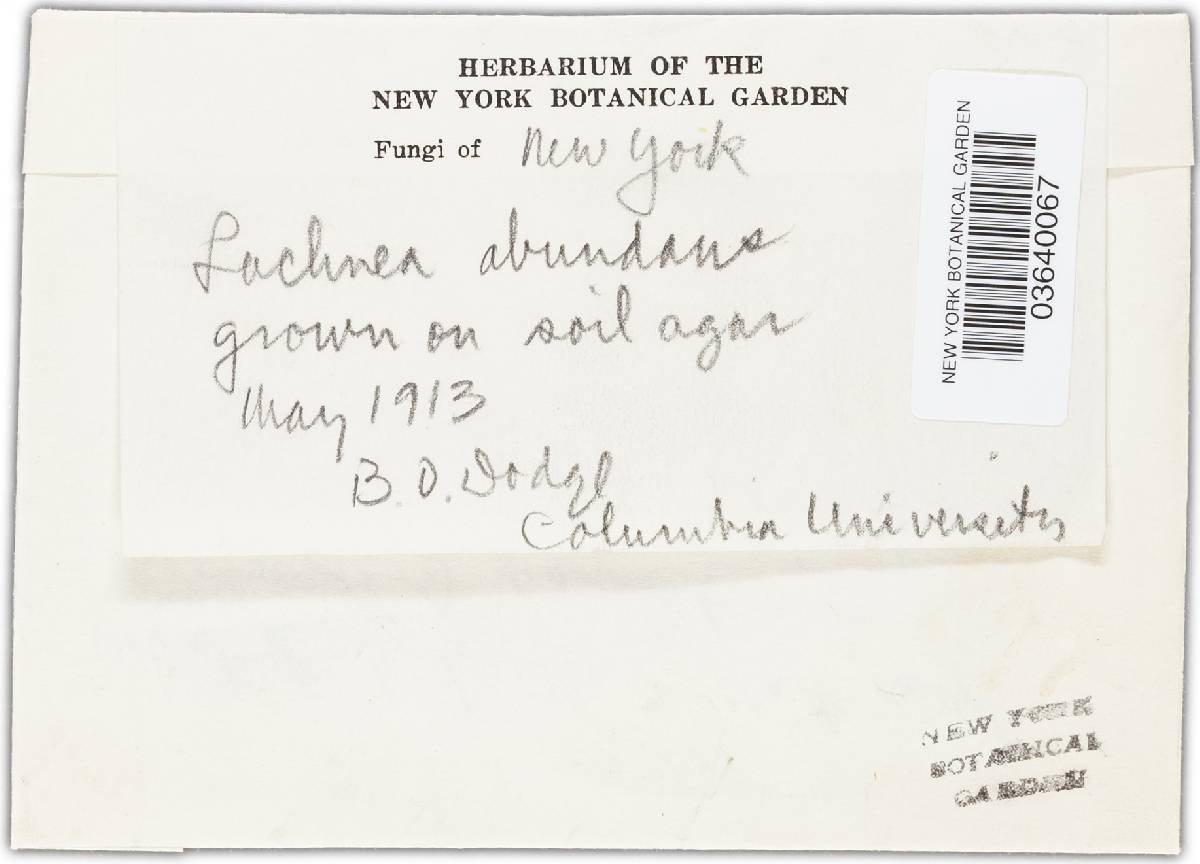 HERBARIUM OF THE
NEW YORK BOTANICAL GARDEN
Fungi of New York
Lachnea abundans
grown on soil agar
May 1913
B. O. Dodge
Columbia University
NEW YORK BOTANICAL GARDEN
03640067
NEW YORK
BOTANICAL
GARDEN